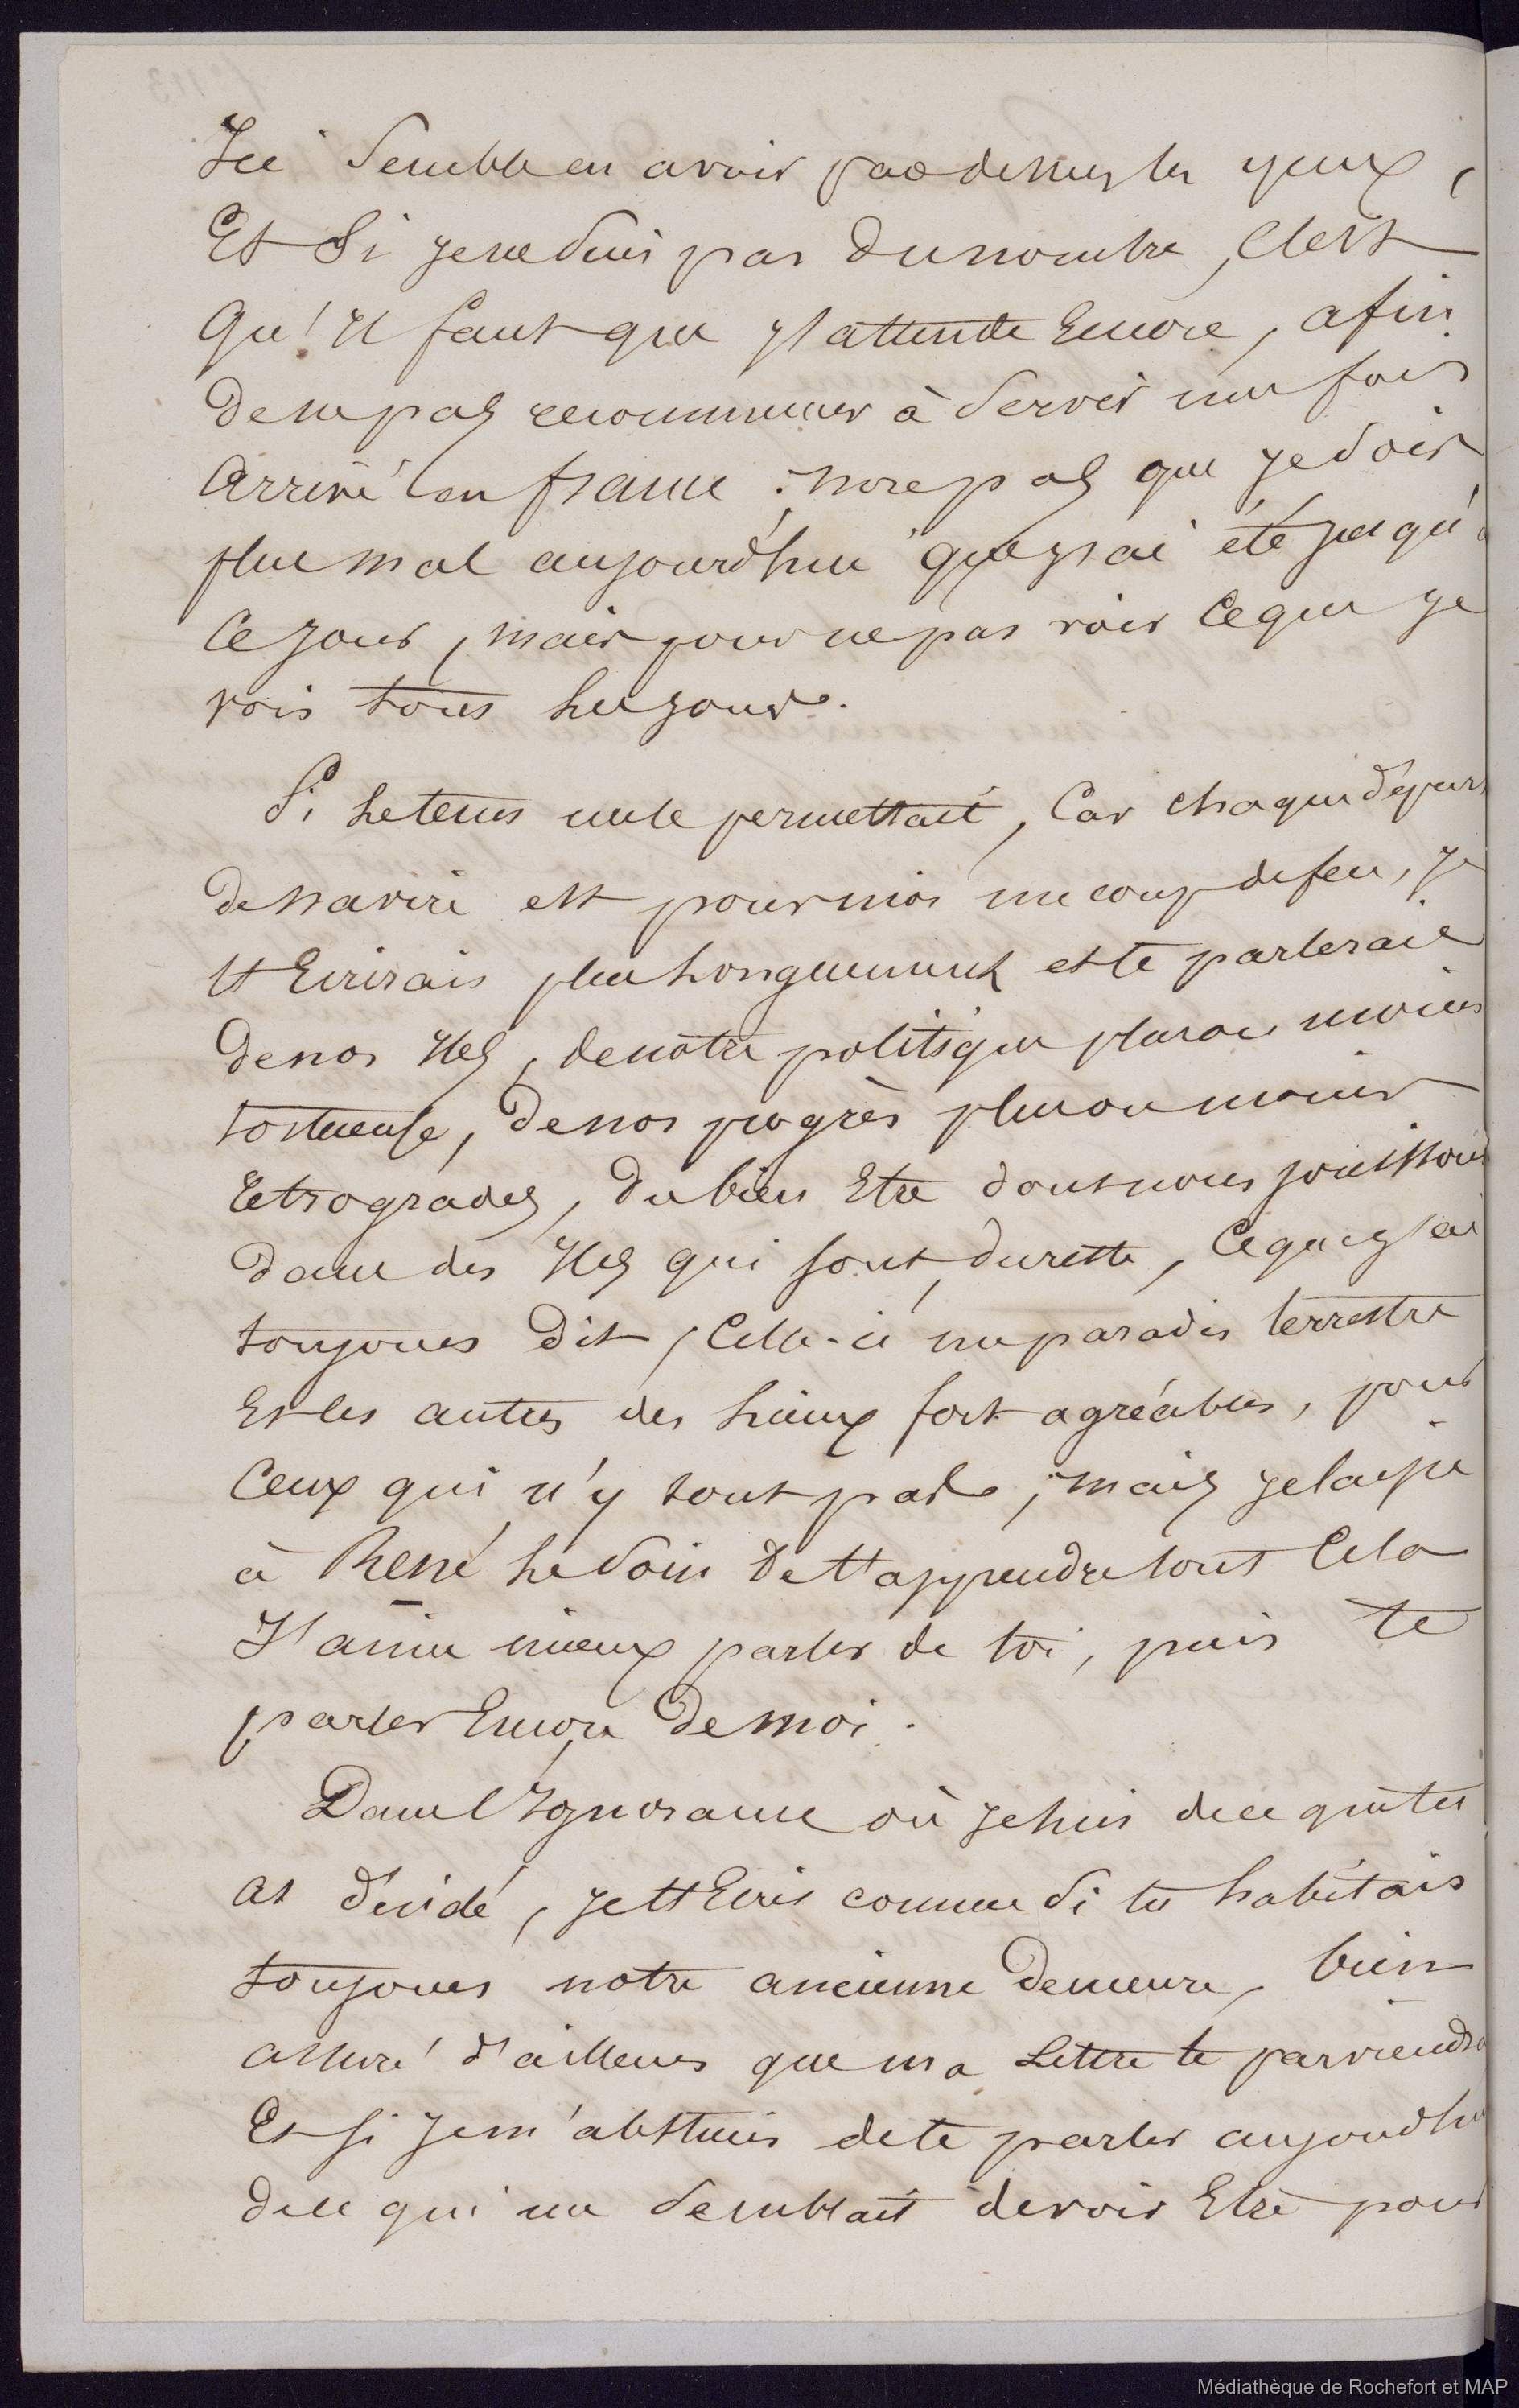 Ici semble en avoir par dessus les yeux,
Et Si je ne suis pas du nombre, C'est
Qu'il faut que j'attende Encore, afin
De ne pas recommencer à Servir une fois
Arrivé en france ; non pas que je sois
plus mal aujourd'hui que j'ai été jusqu'à
Ce jour, mais pour ne pas voir Ce que je
vois tous les jours.
Si le tems me le permettait, Car chaque départ
De navire est pour moi un coup de feu, je
t'Ecrirais plus longuement et te parlerais
De nos Iles, de notre politique plus ou moins
tortueuse, De nos progrès plus ou moins
retrogrades, Du bien Etre dont nous jouissons
Dans des Iles qui sont, du reste, Ce que j'ai
toujours Dit, Celle-ci un paradis terrestre
Et les autres des lieux fort agréables, pour
Ceux qui n'y sont pas ; mais je laisse
à René le soin De t'apprendre tout Cela
J'aime mieux parler de toi, puis te
parler Encore De moi.
Dans l'Ignorance où je suis de ce que tu
as décidé, je t'Ecris comme Si tu habitais
toujours notre ancienne Demeure, bien
assuré d'ailleurs que ma Lettre te parviendra
Et si je m'abstiens de te parler aujourd'hui
De ce qui me Semblait devoir Etre pour
Médiathèque de Rochefort et MAP